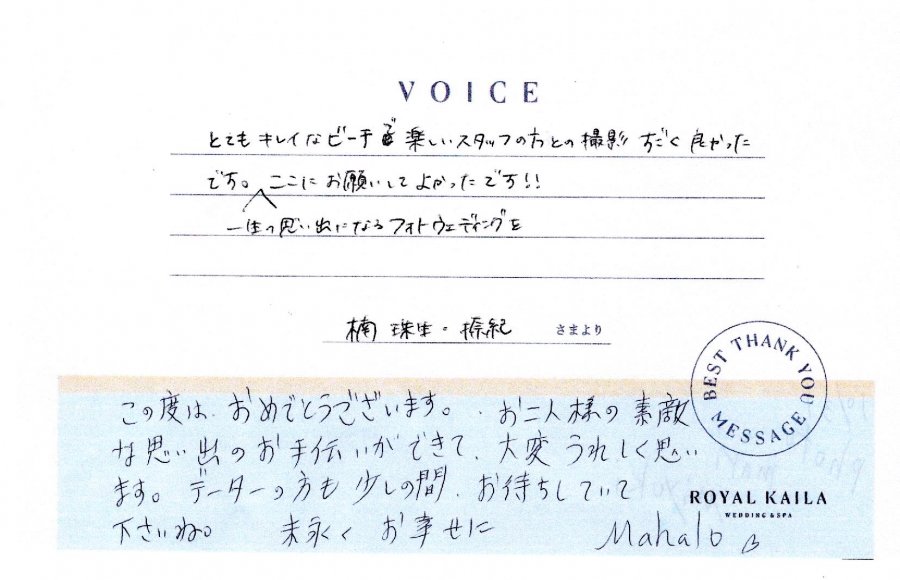 VOICE
とてもキレイなビーチで楽しいスタッフの方との撮影すごく良かった
です。ここにお願いしてよかったです!!
一生の思い出になるフォトウェディングを
楠 珠生・ さまより
BEST THANK YOU MESSAGE
この度は、おめでとうございます。お二人様の素敵
な思い出のお手伝いができて、大変うれしく思い
ます。データーの方も少しの間、お待ちしていて
下さいね。 末永くお幸せに Mahalo
ROYAL KAILA
WEDDING & SPA